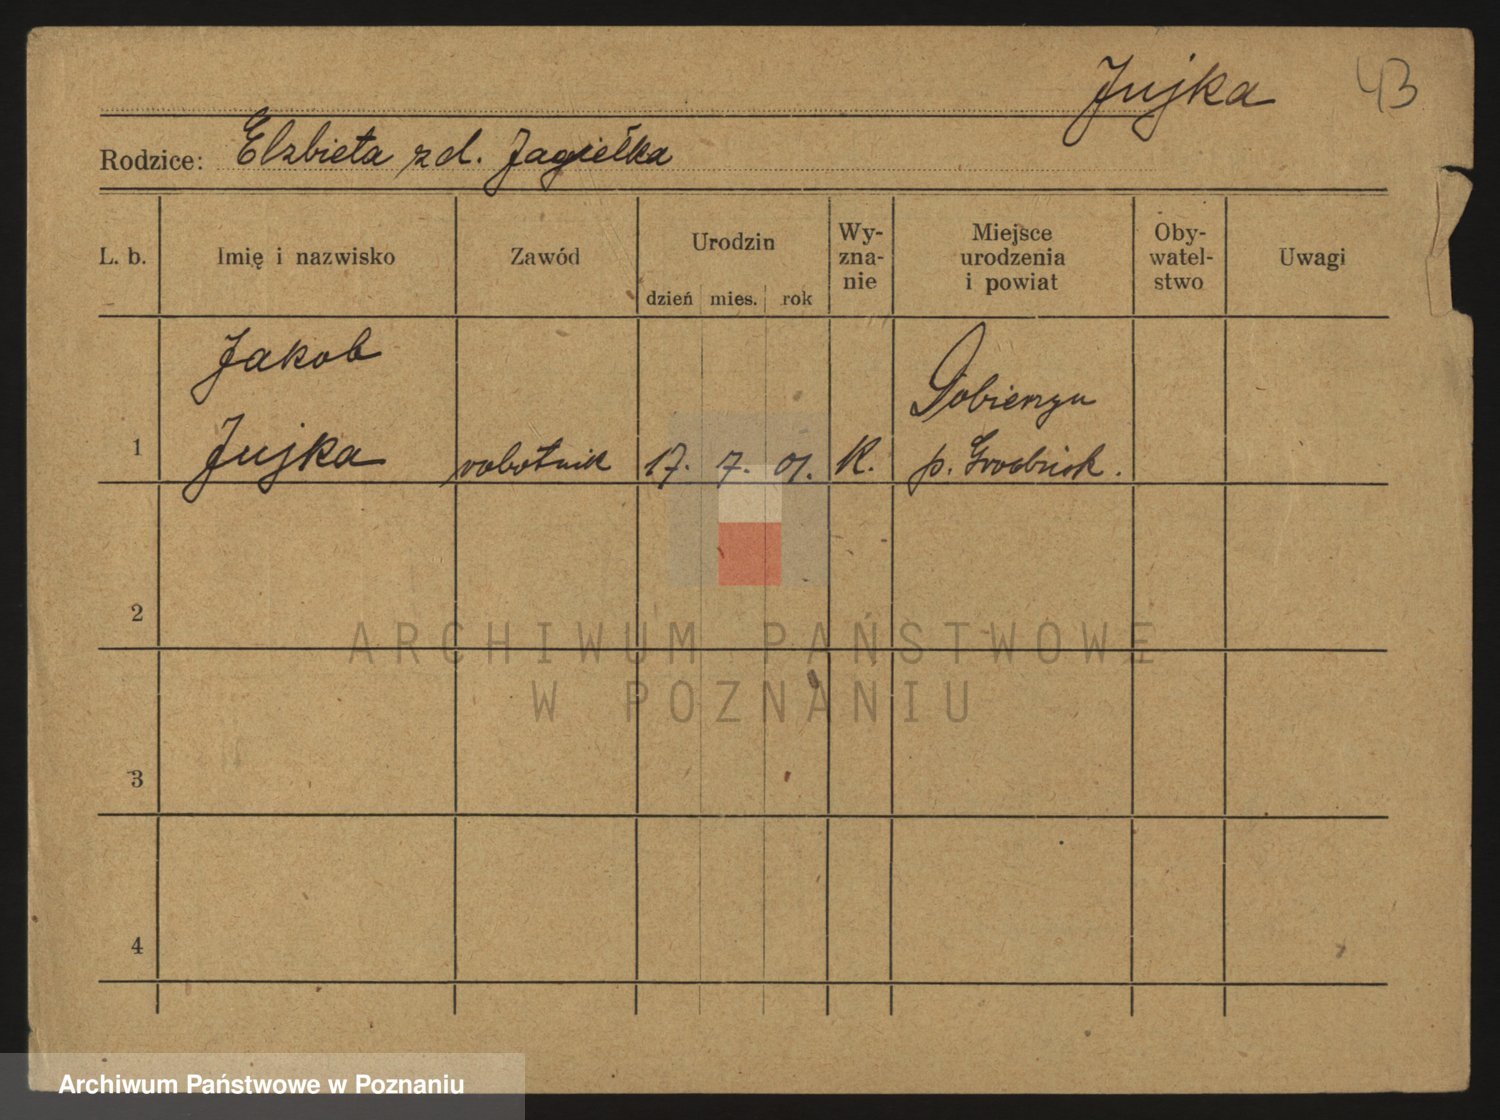 Jujka 43
Rodzice: Elzbieta zd. Jagiełka
L. b.
Imię i nazwisko
Zawód
Urodzin
dzień mies. rok
Wy-
zna-
nie
Miejsce
urodzenia
i powiat
Oby-
watel-
stwo
Uwagi
Jakob
1 Jujka robotnik 17. 7. 01. K. p. Grodzisk.
2
3
4
ARCHIWUM PAŃSTWOWE
W POZNANIU
Archiwum Państwowe w Poznaniu